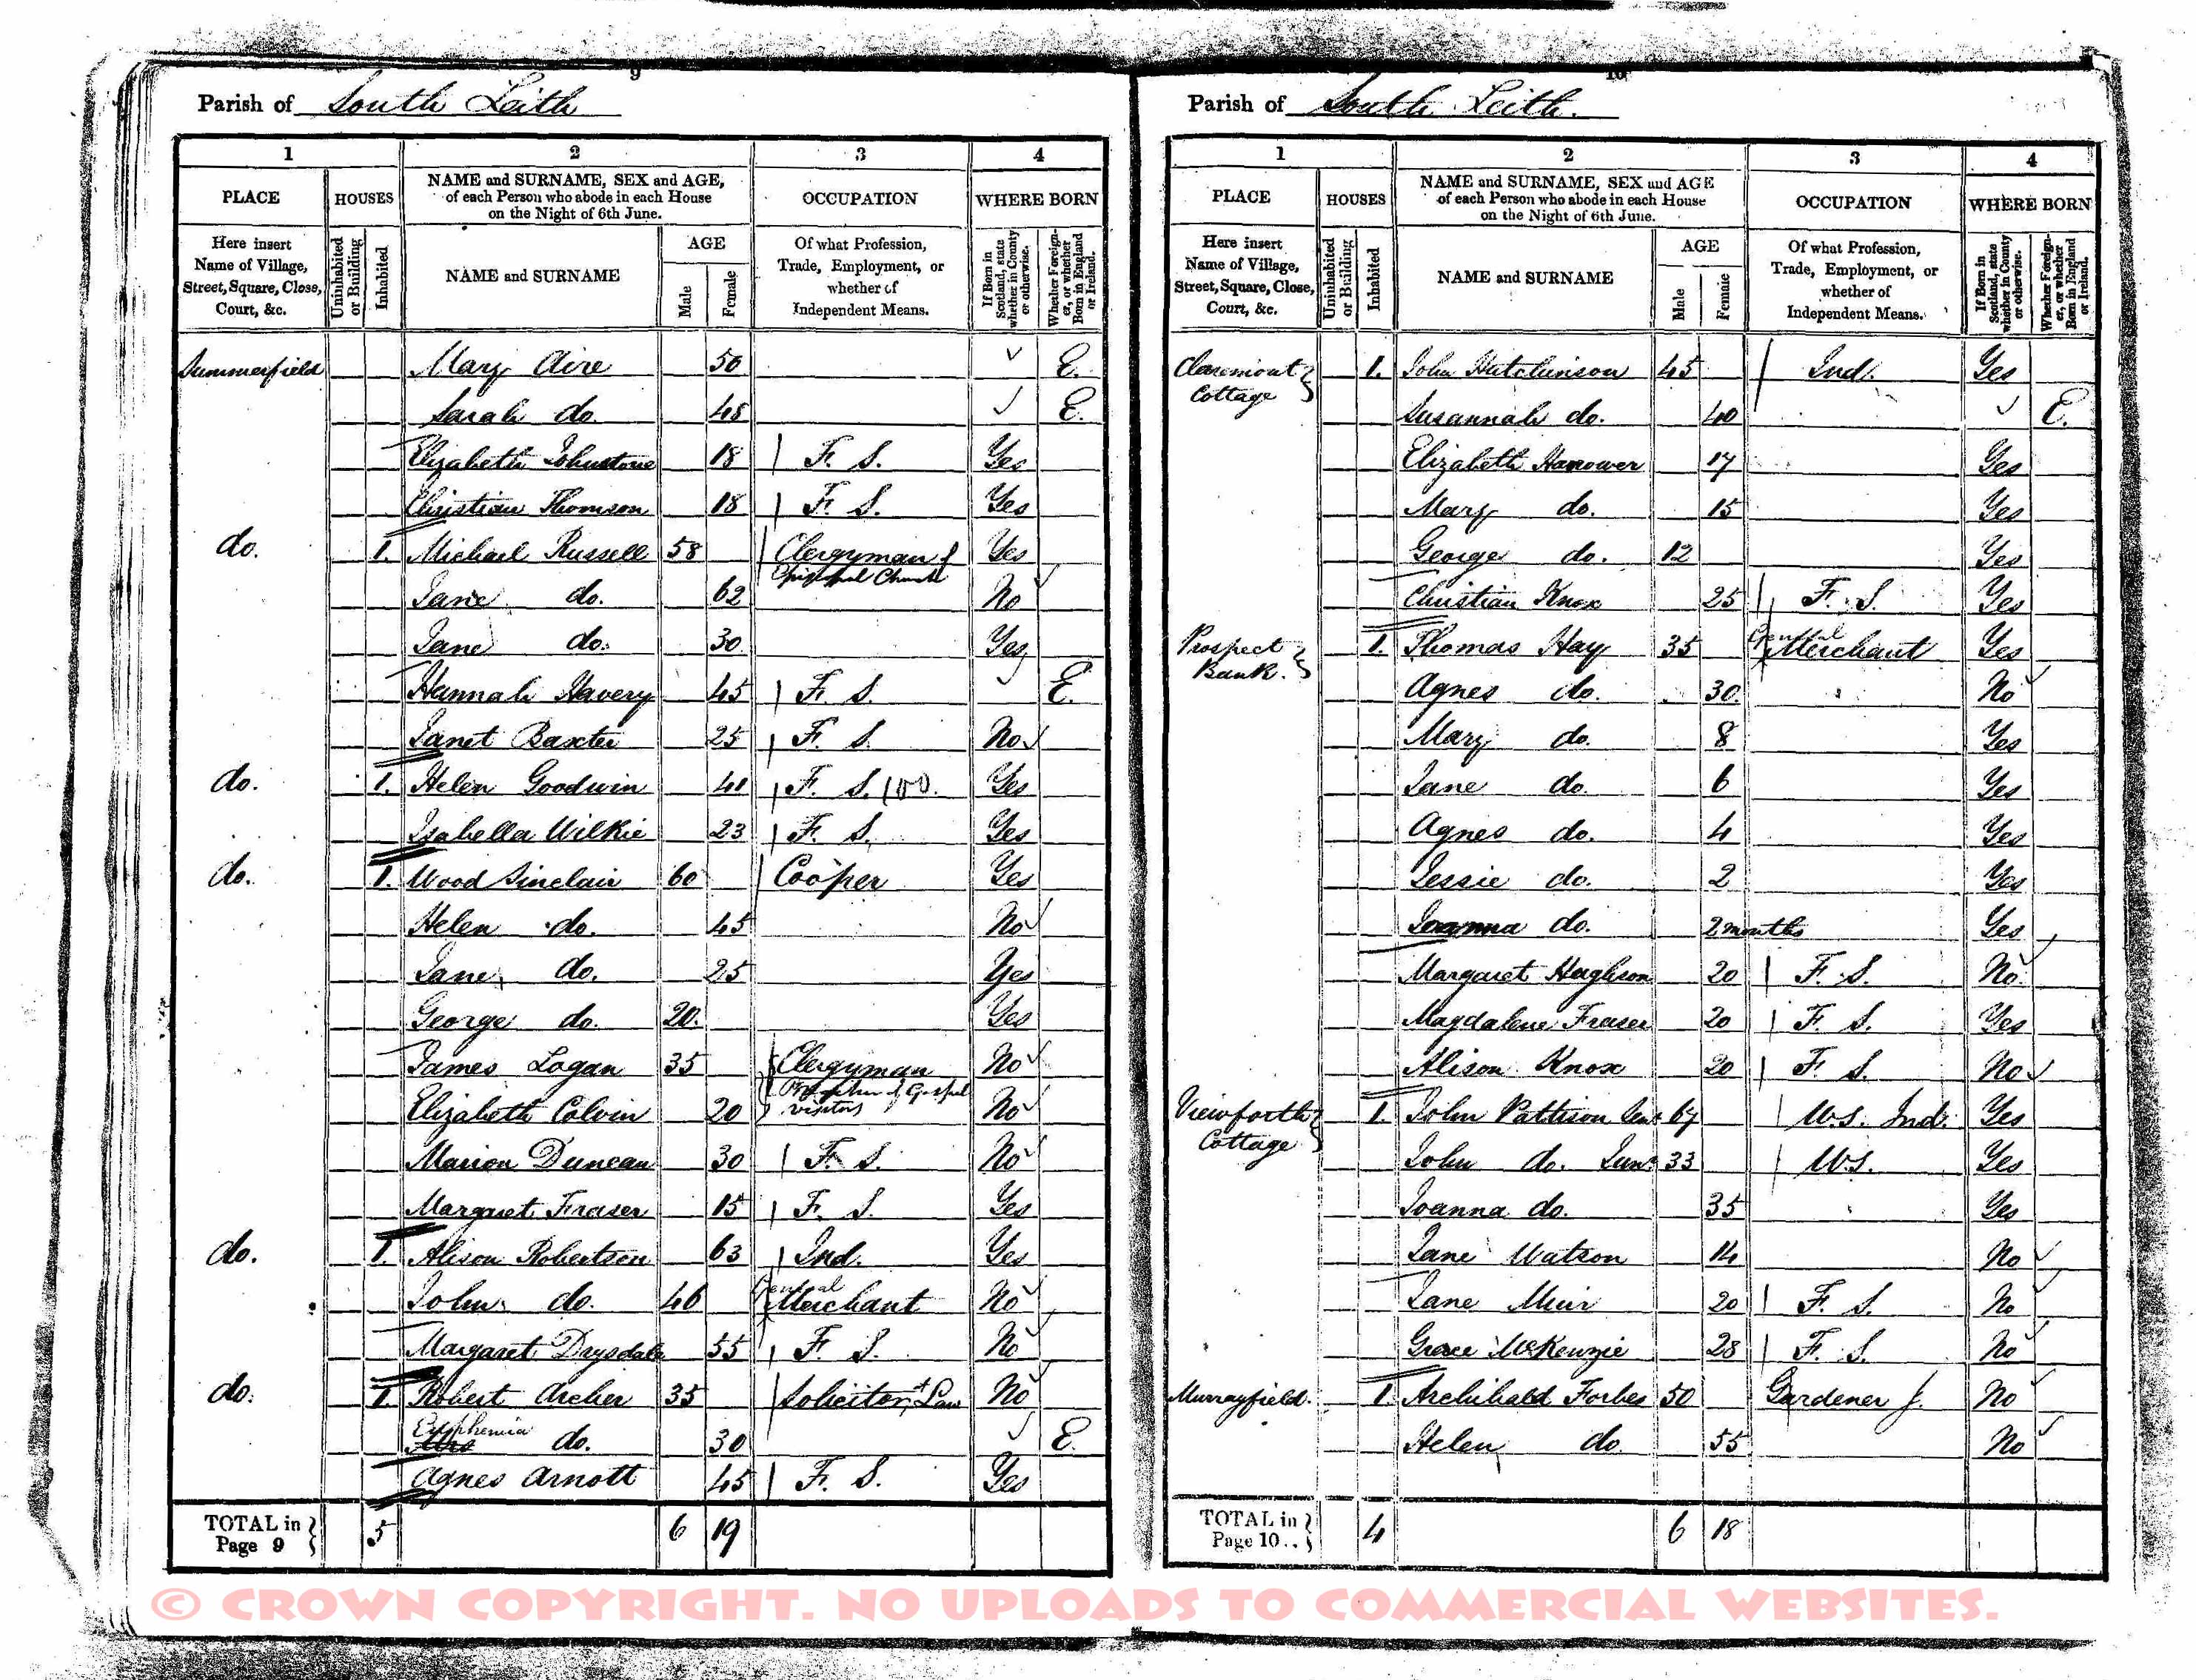 9
Parish of South Leith
1 2 3 4
PLACE HOUSES NAME and SURNAME, SEX and AGE, of each Person who abode in each House on the Night of 6th June. OCCUPATION WHERE BORN
Here insert Name of Village, Street, Square, Close, Court, &c. Uninhabited or Building Inhabited NAME and SURNAME AGE Male Female Of what Profession, Trade, Employment, or whether of Independent Means. If Born in Scotland, state whether in County or otherwise. Whether Foreigner, or whether Born in England or Ireland.
Summerfield Mary Aire 50 E.
Sarah do. 48 E.
Elizabeth Johnstone 18 F. S. Yes
Christian Thomson 18 F. S. Yes
do. 1. Michael Russell 58 Clergyman of Episcopal Church Yes
Jane do. 62 No
Jane do. 30 Yes
Hannah Havery 45 F. S. E.
Janet Baxter 25 F. S. No
do. 1. Helen Goodwin 40 F. S. Yes
Isabella Wilkie 23 F. S. Yes
do. 1. Wood Sinclair 60 Cooper Yes
Helen do. 45 No
Jane do. 25 Yes
George do. 20. Yes
James Logan 35 Clergyman No
Elizabeth Colvin 20 of Gospel visitors No
Marion Duncan 30 F. S. No
Margaret Fraser 15 F. S. Yes
do. 1. Alison Robertson 63 Ind. Yes
John do. 46 General Merchant No
Margaret Drysdale 55 F. S. No
do. 1. Robert Archer 35 Solicitor Law No
Euphemia do. 30 E.
Agnes Arnott 45 F. S. Yes
TOTAL in Page 9 5 6 19
10
Parish of South Leith.
1 2 3 4
PLACE HOUSES NAME and SURNAME, SEX and AGE of each Person who abode in each House on the Night of 6th June. OCCUPATION WHERE BORN
Here insert Name of Village, Street, Square, Close, Court, &c. Uninhabited or Building Inhabited NAME and SURNAME AGE Male Female Of what Profession, Trade, Employment, or whether of Independent Means. If Born in Scotland, state whether in County or otherwise. Whether Foreigner, or whether Born in England or Ireland.
Claremont Cottage 1. John Hutchinson 45 Ind. Yes
Susannah do. 40 E.
Elizabeth Hanower 17 Yes
Mary do. 15 Yes
George do. 12 Yes
Christian Knox 25 F. S. Yes
Prospect Bank. 1. Thomas Hay 35 General Merchant Yes
Agnes do. 30. No
Mary do. 8 Yes
Jane do. 6 Yes
Agnes do. 4 Yes
Jessie do. 2 Yes
Joanna do. 2 months Yes
Margaret Hughson 20 F. S. No.
Magdalene Fraser 20 F. S. Yes
Alison Knox 20 F. S. No
Viewforth Cottage 1. John Pattison Senr 67 W.S. Ind. Yes
John do. Junr 33 W.S. Yes
Joanna do. 35 Yes
Jane Watson 14 No
Jane Muir 20 F. S. No
Grace McKenzie 28 F. S. No
Murrayfield. 1. Archibald Forbes 50 Gardener J. No
Helen do 55 No
TOTAL in Page 10 4 6 18
© CROWN COPYRIGHT. NO UPLOADS TO COMMERCIAL WEBSITES.